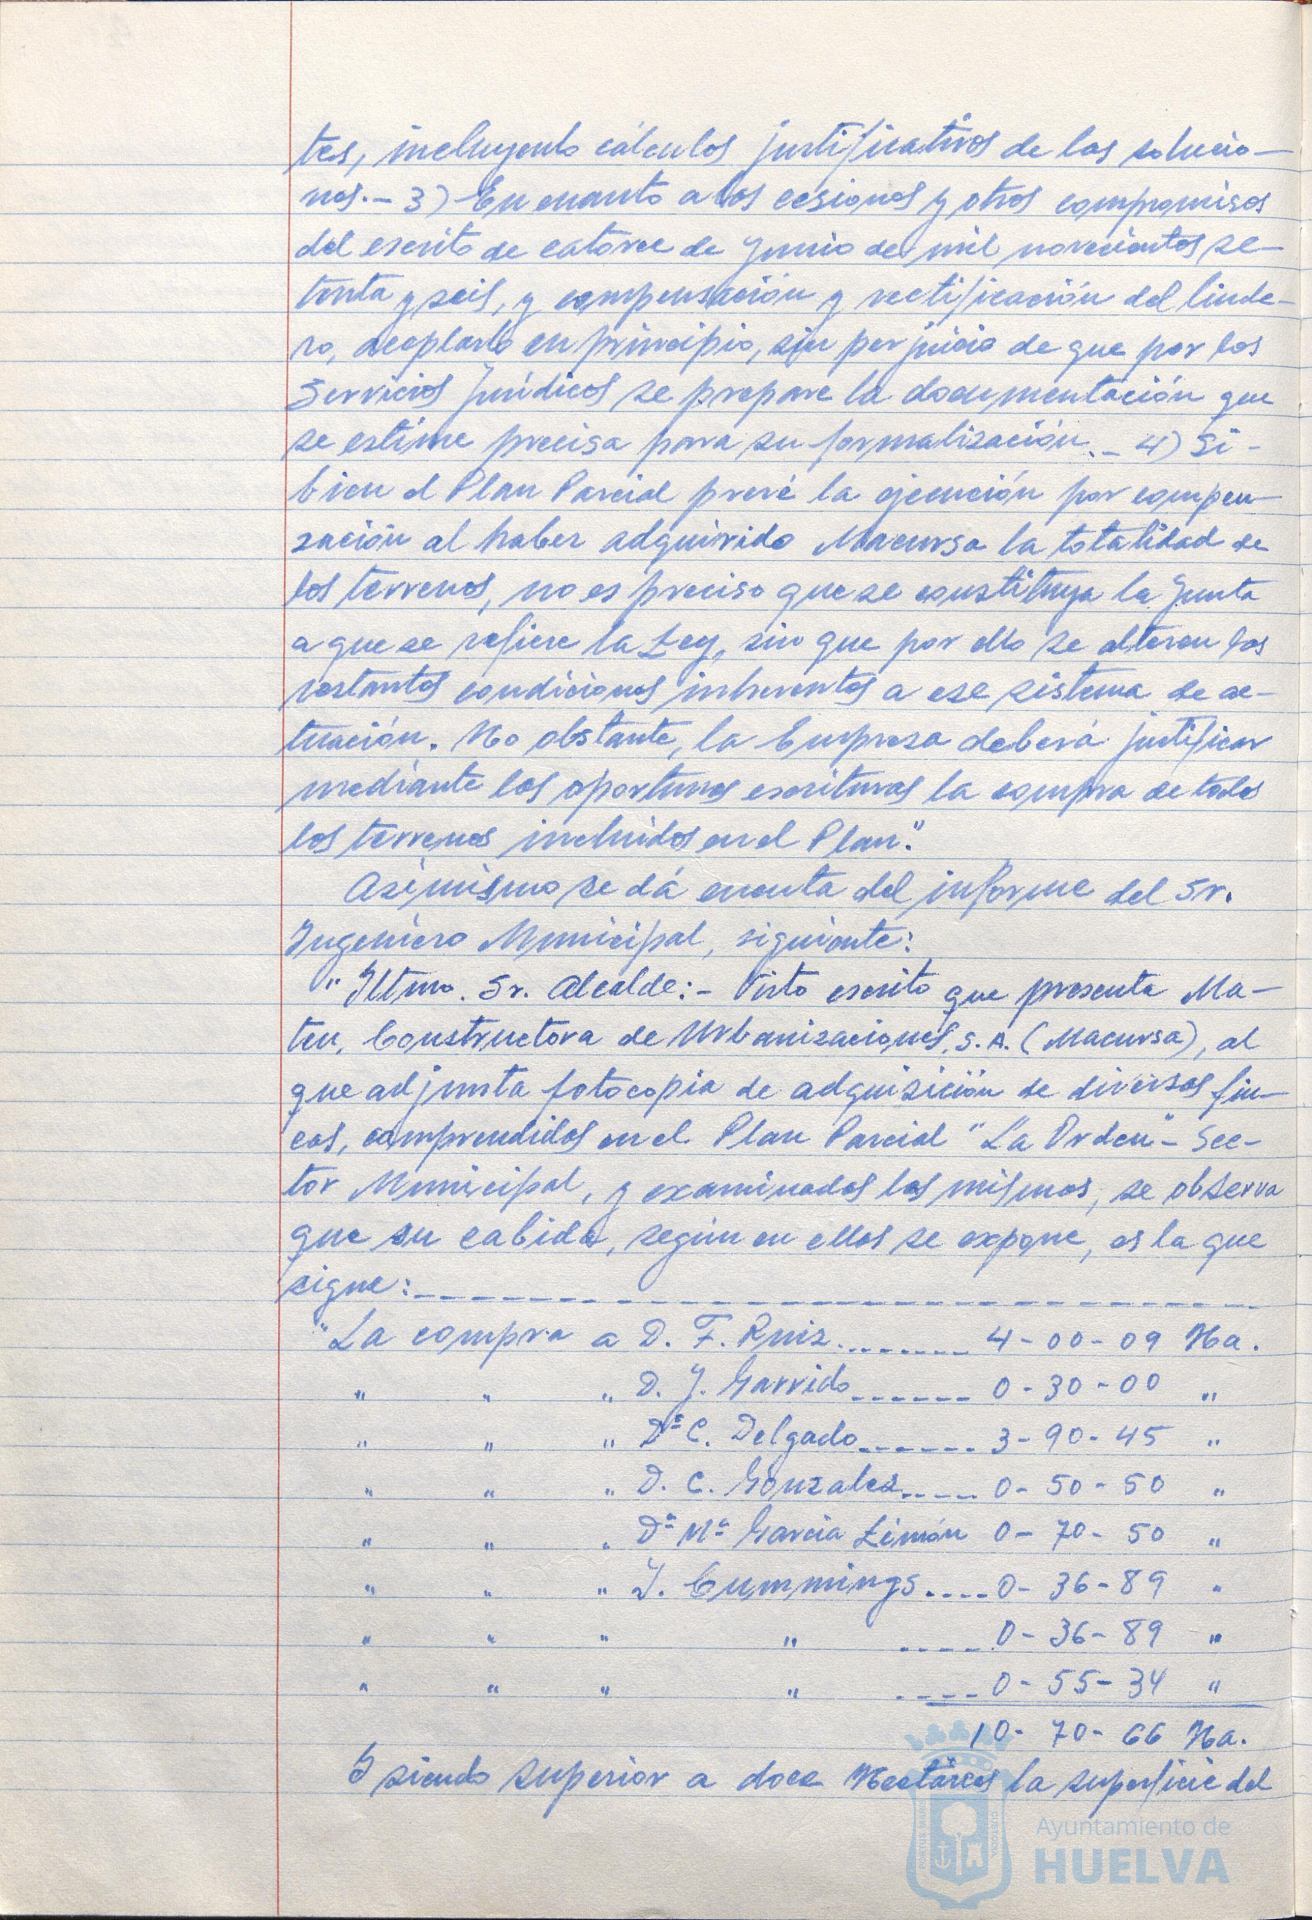 tes, incluyendo cálculos justificativos de las solucio-
nes.- 3) En cuanto a las cesiones y otros compromisos
del escrito de catorce de Junio de mil novecientos se-
tenta y seis, y compensación y rectificación del linde-
ro, aceptarlo en principio, sin perjuicio de que por los
Servicios Jurídicos se prepare la documentación que
se estime precisa para su formalización.- 4) Si-
bien el Plan Parcial prevé la ejecución por compen-
sación al haber adquirido Macursa la totalidad de
los terrenos, no es preciso que se constituya la Junta
a que se refiere la Ley, sin que por ello se alteren las
restantes condiciones inherentes a ese sistema de ac-
tuación. No obstante, la Empresa deberá justificar
mediante las oportunas escrituras la compra de todos
los terrenos incluidos en el Plan".
Asimismo se dá cuenta del informe del Sr.
Ingeniero Municipal, siguiente:
"Iltmo. Sr. Alcalde:- Visto escrito que presenta Ma-
ten, Constructora de Urbanizaciones, S.A. (Macursa), al
que adjunta fotocopia de adquisición de diversas fin-
cas, comprendidas en el Plan Parcial "La Orden"- Sec-
tor Municipal, y examinadas las mismas, se observa
que su cabida, según en ellas se expone, es la que
sigue:- - - - - - - - - - - - - - - - - - - -
"La compra a D. F. Ruiz........ 4-00-09 Ha.
" " " D. J. Garrido------ 0-30-00 "
" " " Dª C. Delgado------ 3-90-45 "
" " " D. C. Gonzalez----- 0-50-50 "
" " " Dª Mª Garcia Limón 0-70-50 "
" " " J. Cummings.... 0-36-89 "
" " " " ..... 0-36-89 "
" " " " ---- 0-55-34 "
10-70-66 Ha.
Y siendo superior a doce Hectáreas la superficie del
Ayuntamiento de
HUELVA